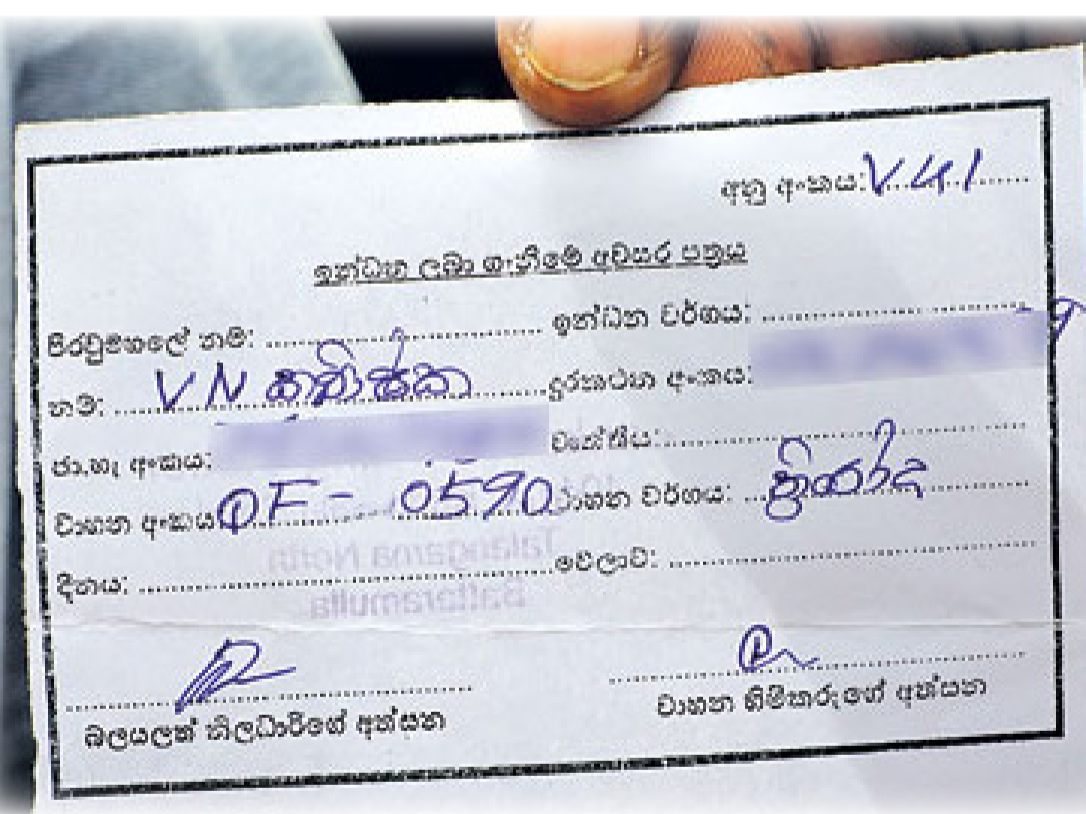 අනු අංකය: V41
ඉන්ධන ලබා ගැනීමේ අවසර පත්‍රය
පිරවුම්හලේ නම: .......... ඉන්ධන වර්ගය: ..........
නම: V N කනිෂ්ක දුරකථන අංකය: 9
ජා.හැ අංකය: වෘත්තිය: ..........
වාහන අංකය QF - 0590 වාහන වර්ගය: ත්‍රීරෝද
දිනය: .......... වේලාව: ..........
Talangama North
Battaramulla
බලයලත් නිලධාරීගේ අත්සන වාහන හිමිකරුගේ අත්සන